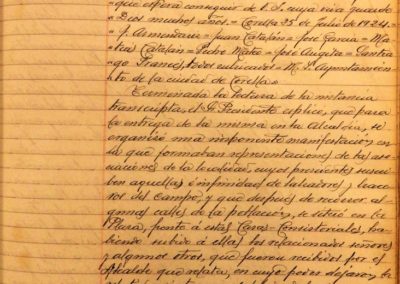 que espera conseguir de V. S. cuya vida guarde
Dios muchos años. = Corella 25 de Julio de 1924. =
= J. Armendariz = Juan Catalán = José García = Ma-
Catalán = Pedro Mateo = José Angusto = Santia-
go Francés, todos rubricados = M. I. Ayuntamien-
to de la ciudad de Corella. =
Terminada la lectura de la instancia
transcripta, el Sr. Presidente explicó, que para
la entrega de la misma en la Alcaldía, se
organizó una imponente manifestación en
la que formaban representaciones de las aso-
ciaciones de la localidad, cuyos presidentes suscri-
ben aquella é infinidad de labradores y brace-
ros del campo, y que después de recorrer al-
gunas calles de la población, se situó en la
Plaza, frente á estas Casas-Consistoriales, ha-
biendo subido á ellas los relacionados señores
y algunos otros, que fueron recibidos por el
Alcalde que relata, en cuyo poder dejaron la